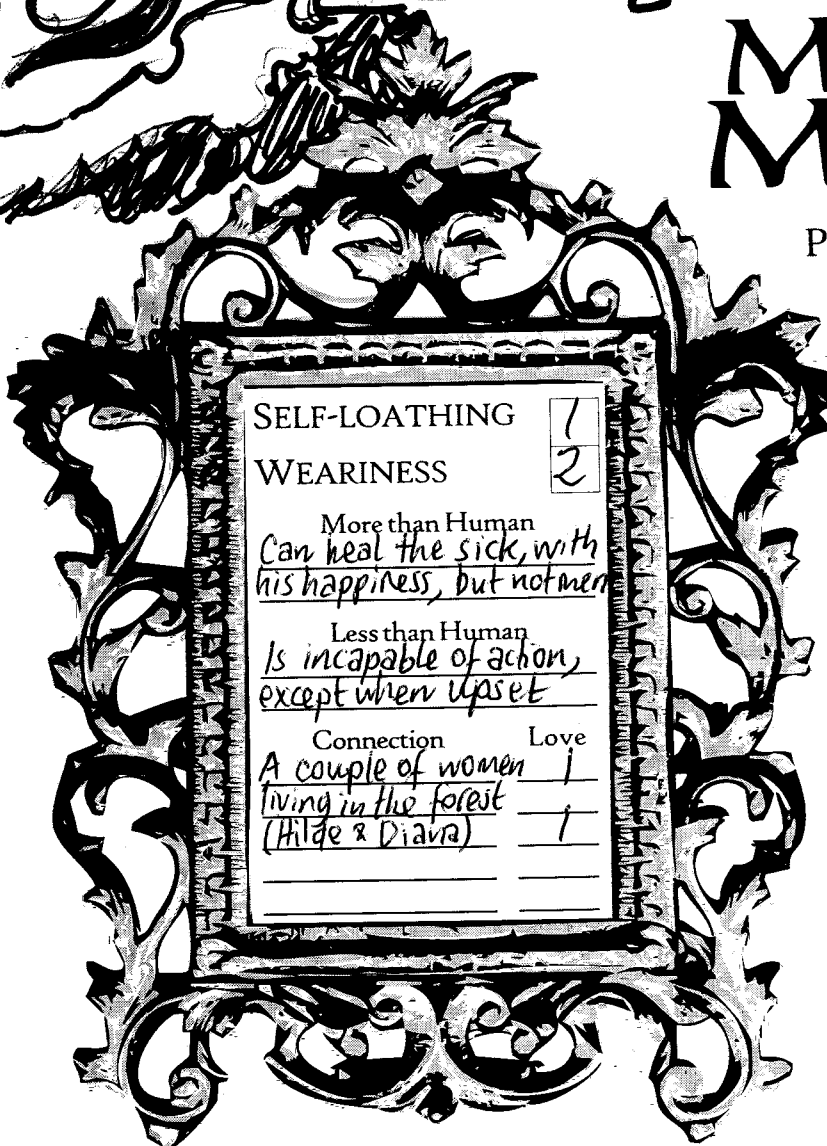 M
M
P
SELF-LOATHING 1
WEARINESS 2
More than Human
Can heal the sick, with
his happiness, but not men
Less than Human
Is incapable of action,
except when upset
Connection Love
A couple of women 1
living in the forest
(Hilde & Diana) 1